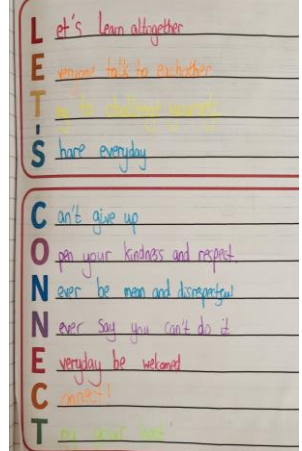 Let's learn altogether
Everyone talk to eachother
Try to challenge yourself
'
Share everyday
Can't give up
Open your kindness and respect
Never be mean and disrespectful
Never say you can't do it
Everyday be welcomed
Connect!
Try your best